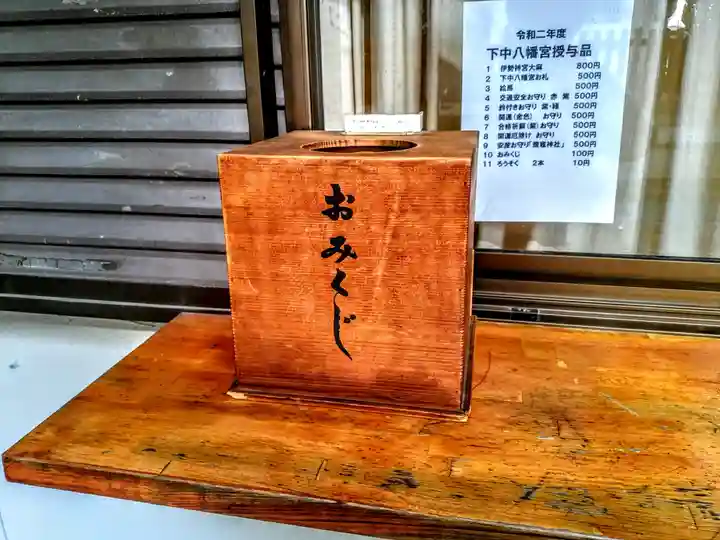 おみくじ
令和二年度
下中八幡宮授与品
1 伊勢神宮大麻 800円
2 下中八幡宮お札 500円
3 絵馬 500円
4 交通安全お守り 赤 紫 500円
5 鈴付きお守り 紫・緑 500円
6 開運(金色) お守り 500円
7 合格祈願(紫)お守り 500円
8 開運厄除け お守り 500円
9 安産お守り「 神社」 500円
10 おみくじ 100円
11 ろうそく 2本 10円